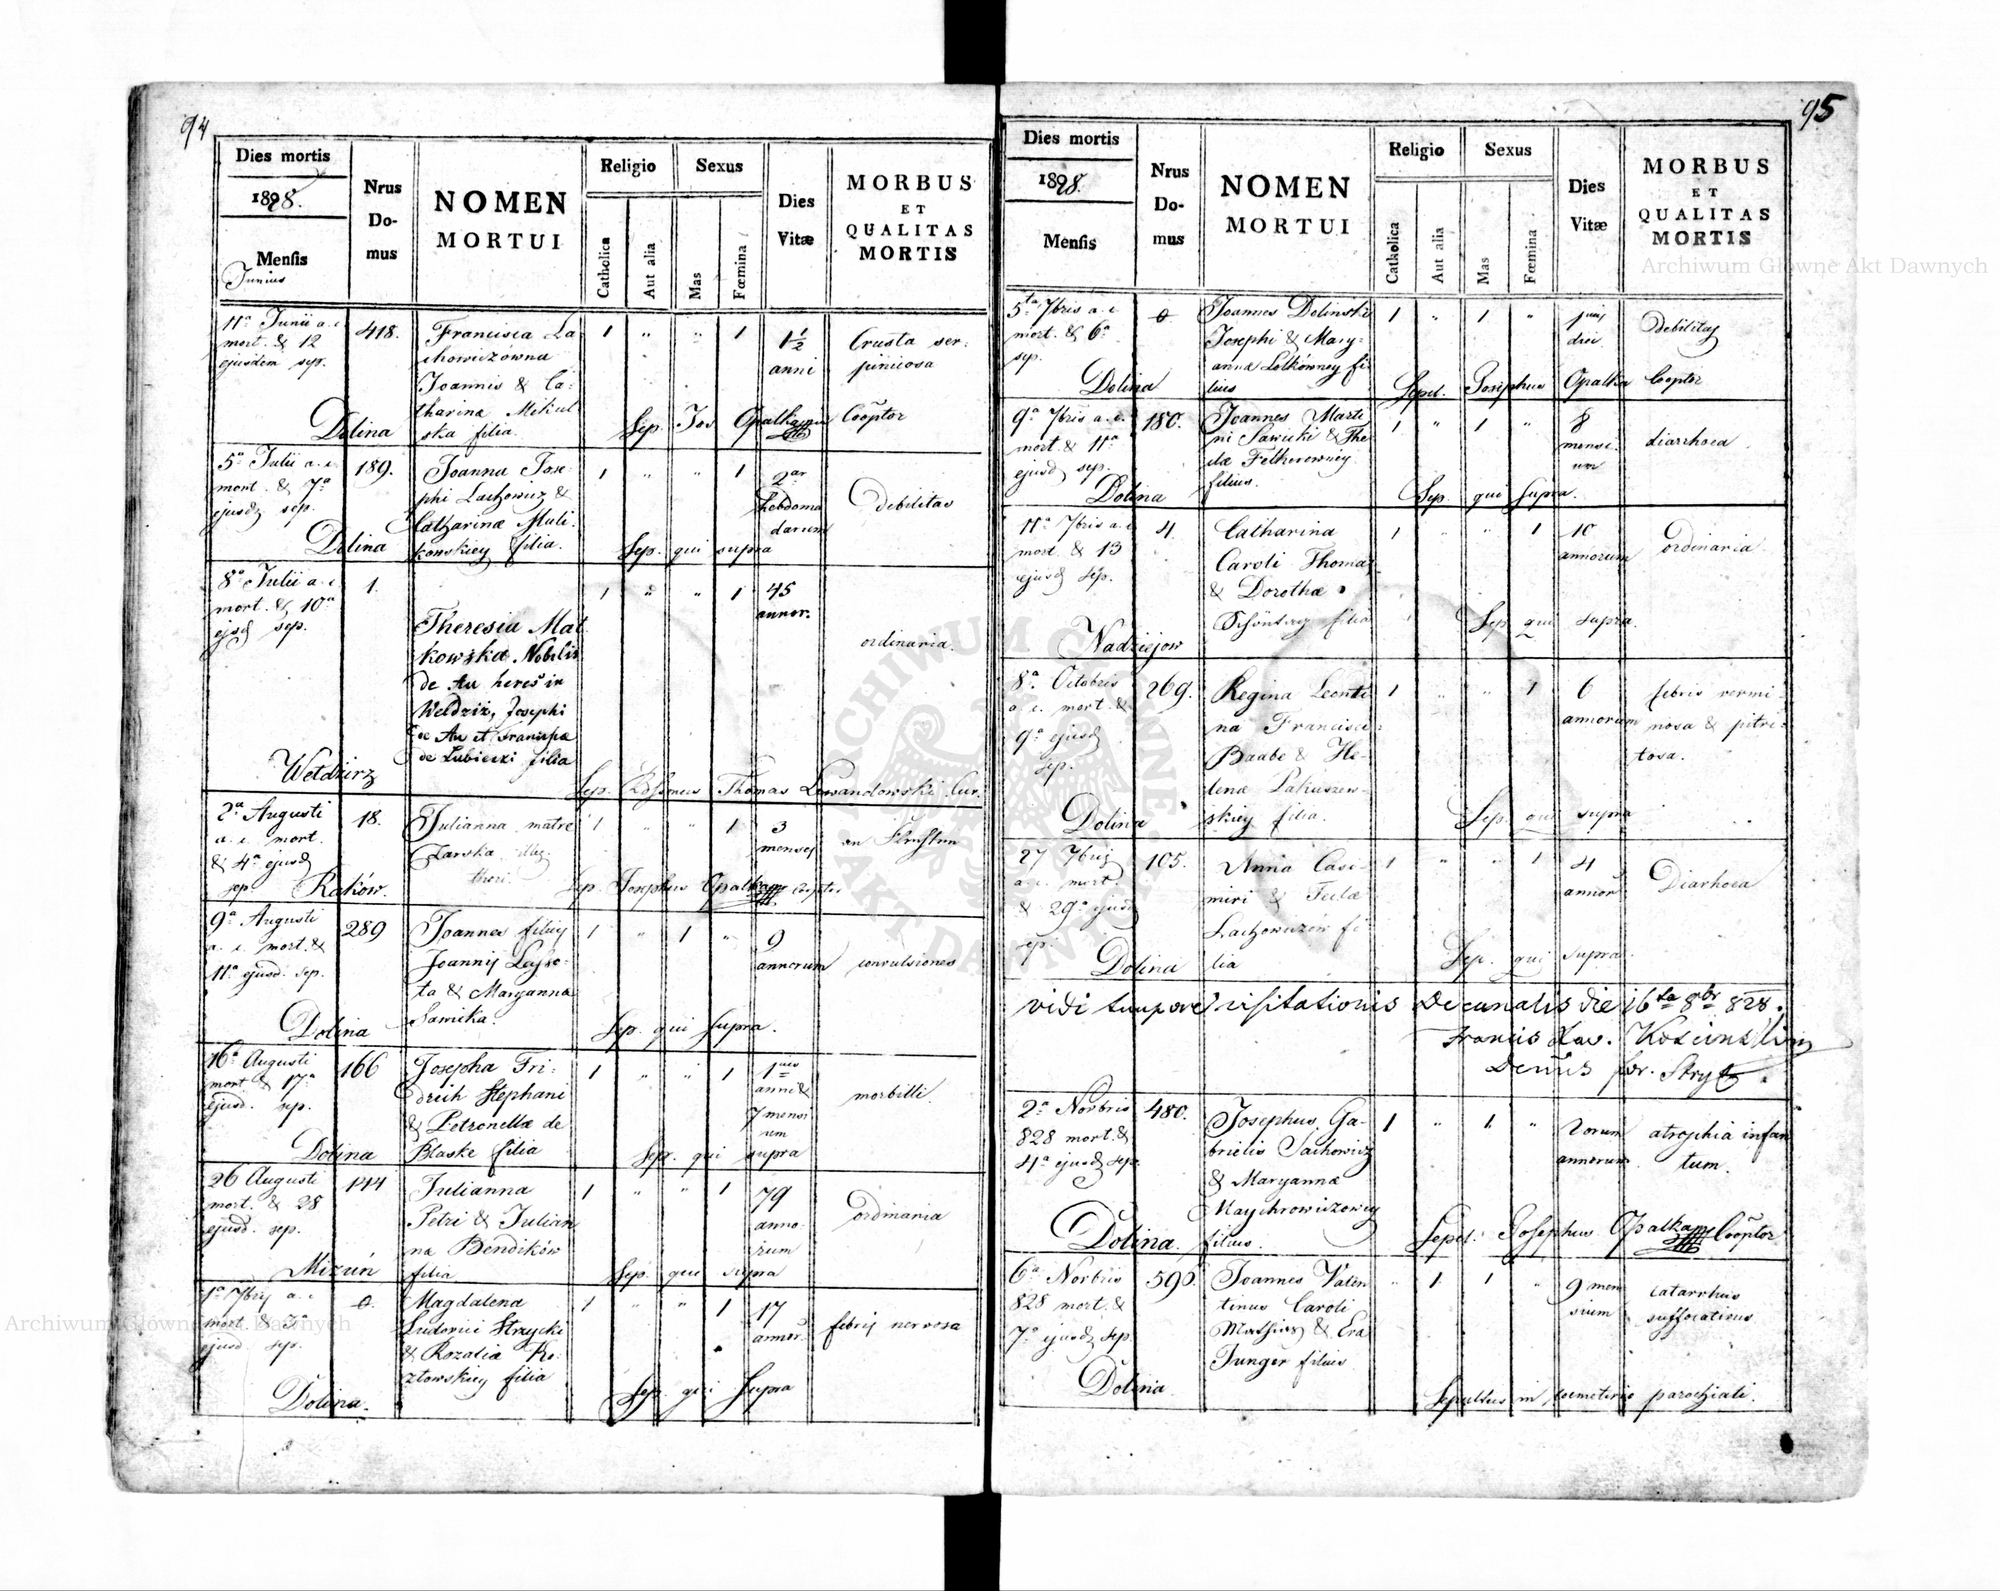 94
Dies mortis
1828.
Mensis
Junius
Nrus Do- mus
NOMEN MORTUI
Religio
Catholica
Aut alia
Sexus
Mas
Fœmina
Dies Vitæ
MORBUS ET QUALITAS MORTIS
11a Junii a. c.
mort. & 12
ejusdem sep.
Dolina
418.
Francisca La
chowiczowna
Joannis & Ca:
tharina Mikul
ska filia.
1 " " 1
1½
anni
Crusta ser:
piniosa
Sep. Jos. Opalka Cooptor
5a Julii a. c.
mort. & 7a
ejusd sep.
Dolina
189.
Joanna Jose:
phi Lachowicz &
Catharinæ Muli:
kowskiey filia.
1 " " 1
2ar
hebdoma
darum
Debilitas
Sep. qui supra
8a Julii a. c.
mort. & 10a
ejusd sep.
Weldzirz
1.
Theresia Mat
kowska Nobilis
de Au heres in
Weldziz, Josephi
de Au et Francisca
de Lubieski filia
1 " " 1
45
annor.
ordinaria.
Sep. Thomas Lewandowski Cur.
2a Augusti
a. c. mort.
& 4a ejusd
sep. Raków.
18.
Julianna matre
1 " " 1
3
menses
Sep. Josephus Opalka Cooptor
9a Augusti
a. c. mort. &
11a ejusd. sep.
Dolina
289
Joannes filius
Joannis Lasso:
ta & Maryanna
Sawicka.
1 " 1 "
9
annorum
convulsiones
Sep. qui supra.
16a Augusti
mort & 17a
ejusd. sep.
Dolina
166
Josepha Fri:
drich Stephani
& Petronellæ de
Blaske filia
1 " " 1
1ius
anni &
7 mensi
um
morbilli.
Sep. qui supra
26 Augusti
mort. & 28
ejusd. sep.
Mizuń
144
Julianna
Petri & Julian
na Bendików
filia
1 " " 1
79
anno:
rum
ordinaria
Sep. qui supra
1a 7bris a. c.
mort & 3a
ejusd sep.
Dolina.
0.
Magdalena
Ludovici Strzycki
& Rozalia Ko:
złowskiey filia
1 " " 1
17
annor.
febris nervosa
Sep. qui supra
95
Dies mortis
1828.
Mensis
Nrus Do- mus
NOMEN MORTUI
Religio
Catholica
Aut alia
Sexus
Mas
Fœmina
Dies Vitæ
MORBUS ET QUALITAS MORTIS
5ta 7bris a. c
mort. & 6a
sep.
Dolina
0.
Joannes Dolinski
Josephi & Mary:
anna Lotkówney fi
lius
1 " 1 "
1ius
diei
Debilitas
Sepel. Josephus Opalka Cooptor
9a 7bris a. c.
mort & 11a
ejusd sep.
Dolina
180.
Joannes Marti
ni Sawicki & The
clæ Felkerowney
filius.
1 " 1 "
8
mensi:
um
diarrhoea.
Sep. qui supra.
11a 7bris a. c
mort & 13
ejusd sep.
Nadziejow
4.
Catharina
Caroli Thomas
& Dorothæ
filia
1 " " 1
10
annorum
ordinaria
Sep qui supra.
8a Octobris
a. c. mort. &
9a ejusd
sep.
Dolina
269.
Regina Leonti
na Francisci
Baabe & He-
lenæ Lakuszew-
skiey filia.
1 " " 1
6
annorum
febris vermi-
nosa & pitui
tosa.
Sep. qui supra
27 7bris
a. c. mort.
& 29a ejusd
sep.
Dolina
105.
Anna Casi-
miri & Teclæ
Lachowiczów fi-
lia
1 " " 1
4
annor
Diarhoea
Sep. qui supra.
vidi tempore visitationis Decanalis die 16ta 8br 828.
Francis Xav.
2a Novbris
828 mort. &
4a ejusd sep.
Dolina.
480.
Josephus Ga-
brielis Lachowicz
& Maryannæ
Maychrowiczowey
filius.
1 " 1. "
2orum
annorum
atrophia infan
tum.
Sepel: Josephus Opalka Cooptor
6a Novbris
828 mort. &
7a ejusd sep.
Dolina.
590.
Joannes Valen
tinus Caroli
Mathias & Eva
Junger filius
" 1 1 "
9 men
sium
catarrhus
suffocativus
Sepultus in coemeterio parochiali.
Archiwum Główne Akt Dawnych